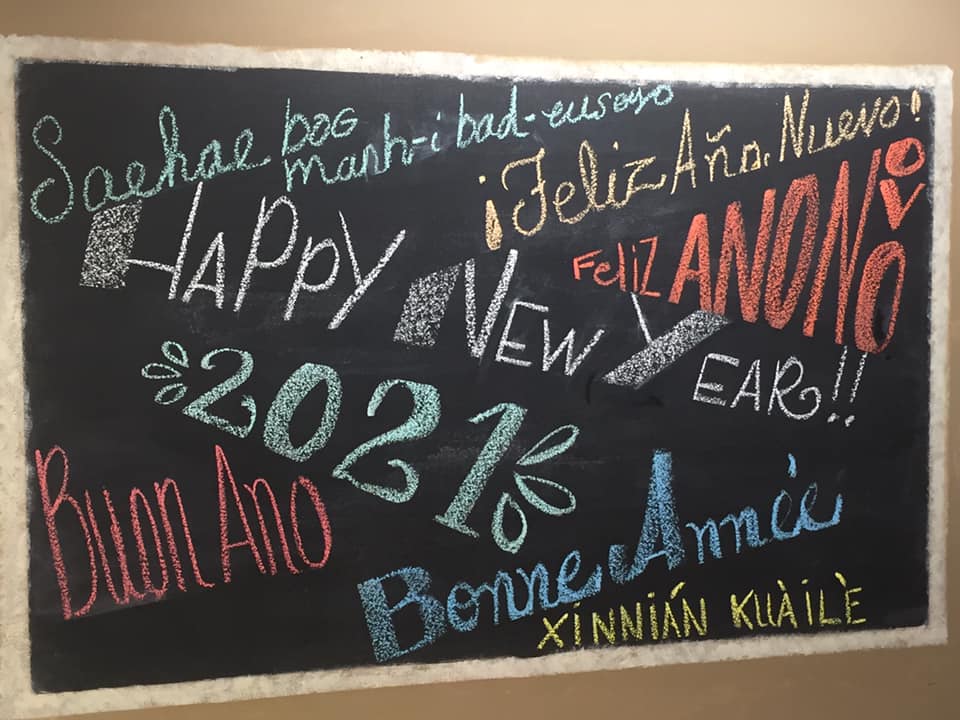 Saehae bog
manh-i bad-euseyo
¡Feliz Año Nuevo!
HAPPY NEW YEAR!!
FELIZ ANO NOVO
2021
BUON ANO
Bonne Année
XINNIÁN KUÀILÈ